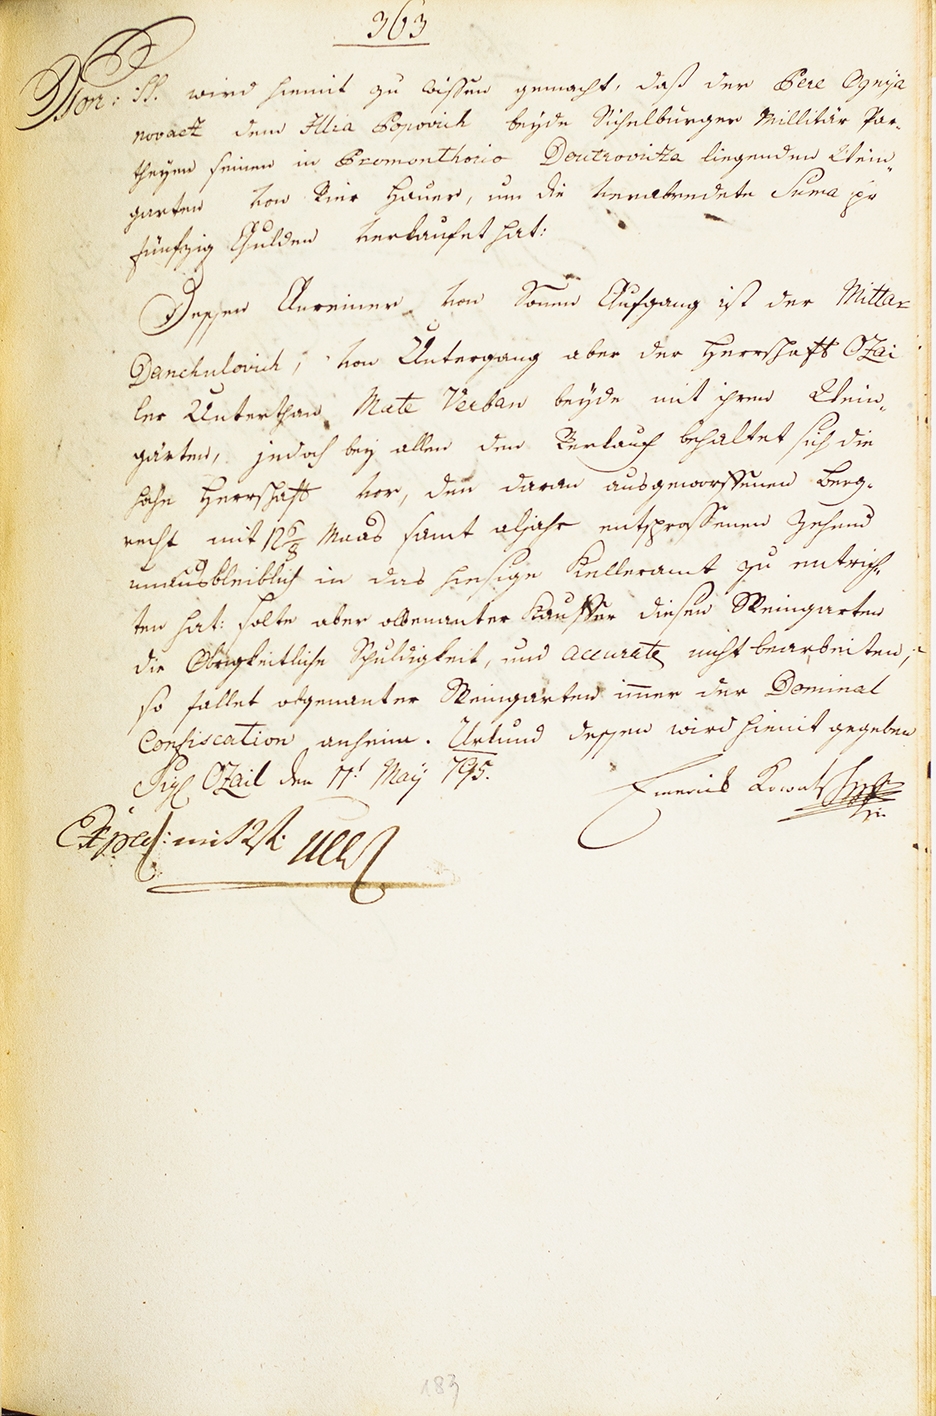 363
Von: :H. wird hiemit zu wissen gemacht, daß der Pere Ognya
novacz dem Illia Popovich beyde Sichelburger Millitär Par-
theyen seinen in Promonthorio Doutrovitza liegenden Wein-
garten von Vier Hauer, um die verabredete Suma pr
fünfzig Gulden verkaufet hat:
Dessen Anreiner von Sonen Aufgang ist der Mittar
Danchulovich, von Untergang aber der Herrschaft Ozai
ler Unterthan Mate Verban beyde mit ihren Wein-
gärten, jedoch bey allen den Verkauf behaltet sich die
hohe Herrschaft vor, den daran ausgeworffenen Berg-
recht mit 12 6/8 Maas samt aljahr entsprossenen Zehend
unausbleiblich in das hiesige Kelleramt zu entrich-
ten hat: solte aber obbenanter Kauffer diesen Weingarten
die Obrigkeitliche Schuldigkeit, und accurate nicht bearbeiten,
so fallet obgenanter Weingarten imer der Dominal
Confiscation anheim. Urkund dessen wird hiemit gegeben
Sigl Ozail den 11t May 795.
Emerich Kowats
Exped: mit 2 f:
183